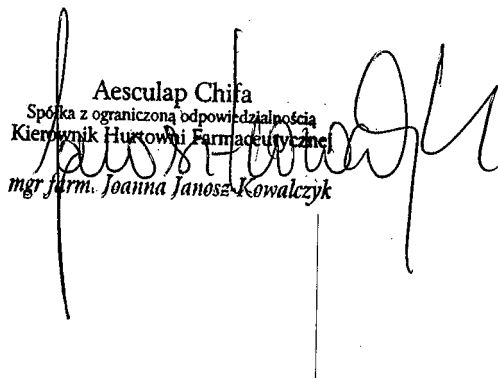 Aesculap Chifa
Spółka z ograniczoną odpowiedzialnością
Kierownik Hurtowni Farmaceutycznej
mgr farm. Joanna Janosz-Kowalczyk